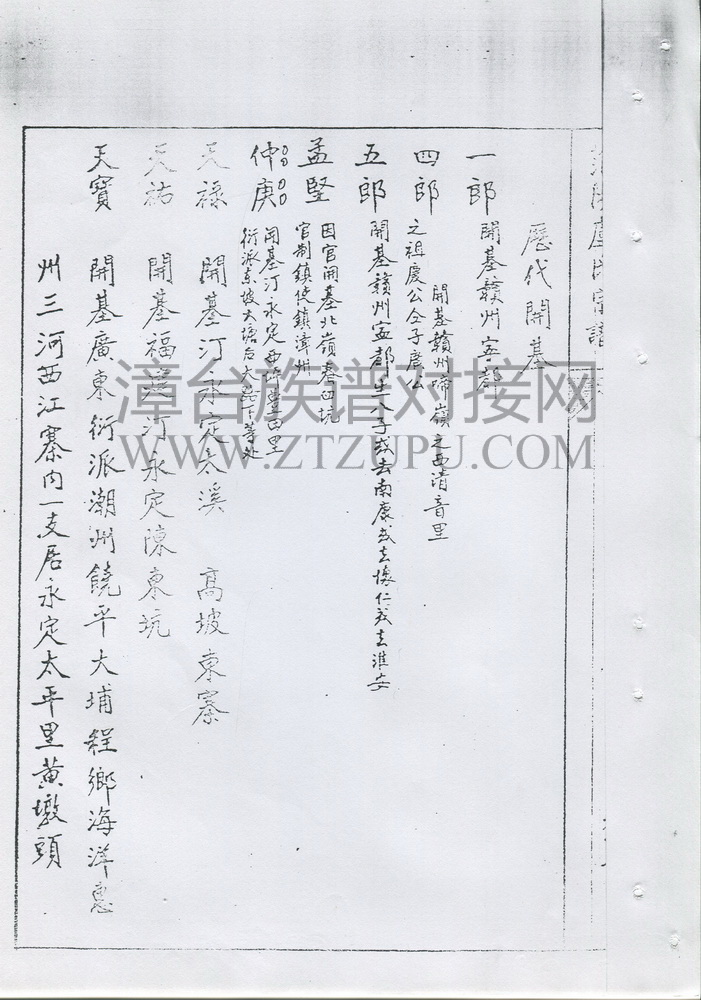 歷代開基
一郎 開基贛州寧都
四郎 開基贛州 嶺之西清音里
之祖慶公全子廣公
五郎 開基贛州寧都生八子或去南康或去懷仁或去淮安
孟堅 因官開基北嶺基四坑
官制鎮使鎮漳州
仲庚 開基汀永定西 豊田里
衍派東坡大塘后大 下等处
天祿 開基汀永定太溪 高坡東寨
天祐 開基福建汀永定陳東坑
天寶 開基廣東衍派潮州饒平大埔程鄉海洋惠
州三河西江寨內一支居永定太平里黃墩頭
漳台族谱对接网
WWW.ZTZUPU.COM